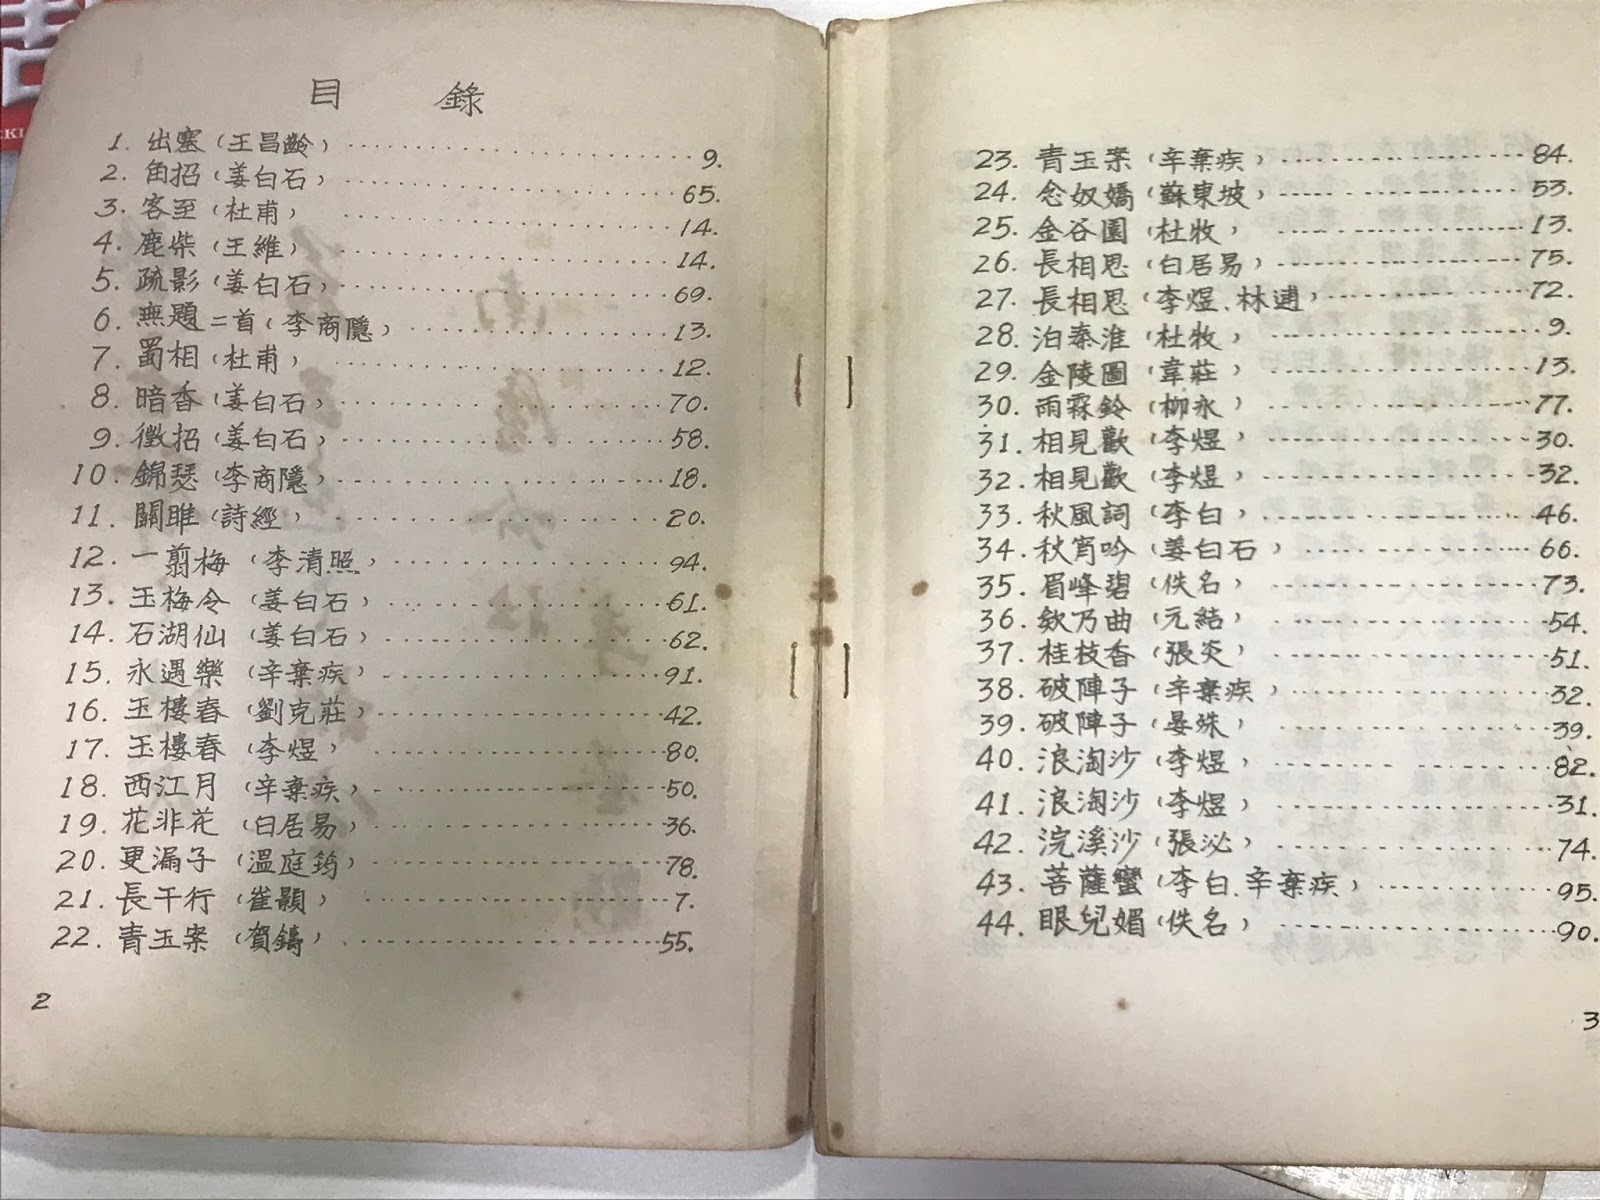 目 錄
1. 出塞(王昌齡) 9.
2. 角招(姜白石) 65.
3. 客至(杜甫) 14.
4. 鹿柴(王維) 14.
5. 疏影(姜白石) 69.
6. 無題二首(李商隱) 13.
7. 蜀相(杜甫) 12.
8. 暗香(姜白石) 70.
9. 徵招(姜白石) 58.
10. 錦瑟(李商隱) 18.
11. 關雎(詩經) 20.
12. 一翦梅(李清照) 94.
13. 玉梅令(姜白石) 61.
14. 石湖仙(姜白石) 62.
15. 永遇樂(辛棄疾) 91.
16. 玉樓春(劉克莊) 42.
17. 玉樓春(李煜) 80.
18. 西江月(辛棄疾) 50.
19. 花非花(白居易) 36.
20. 更漏子(溫庭筠) 78.
21. 長干行(崔顥) 7.
22. 青玉案(賀鑄) 55.
2
23. 青玉案(辛棄疾) 84.
24. 念奴嬌(蘇東坡) 53.
25. 金谷園(杜牧) 13.
26. 長相思(白居易) 75.
27. 長相思(李煜.林逋) 72.
28. 泊秦淮(杜牧) 9.
29. 金陵圖(韋莊) 13.
30. 雨霖鈴(柳永) 77.
31. 相見歡(李煜) 30.
32. 相見歡(李煜) 32.
33. 秋風詞(李白) 46.
34. 秋宵吟(姜白石) 66.
35. 眉峰碧(佚名) 73.
36. 欸乃曲(元結) 54.
37. 桂枝香(張炎) 51.
38. 破陣子(辛棄疾) 32.
39. 破陣子(晏殊) 39.
40. 浪淘沙(李煜) 82.
41. 浪淘沙(李煜) 31.
42. 浣溪沙(張泌) 74.
43. 菩薩蠻(李白.辛棄疾) 95.
44. 眼兒媚(佚名) 90.
3